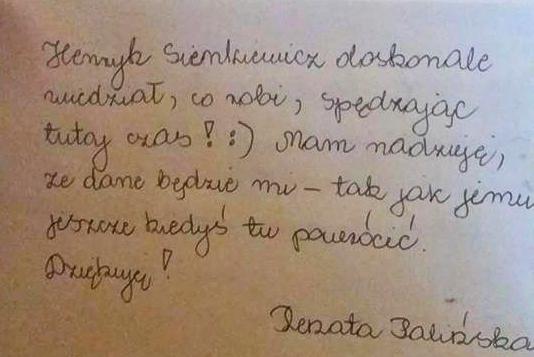 Henryk Sienkiewicz doskonale
wiedział, co robi, spędzając
tutaj czas! :) Mam nadzieję,
że dane będzie mi – tak jak jemu
jeszcze kiedyś tu powrócić.
Dziękuję!
Renata Palińska